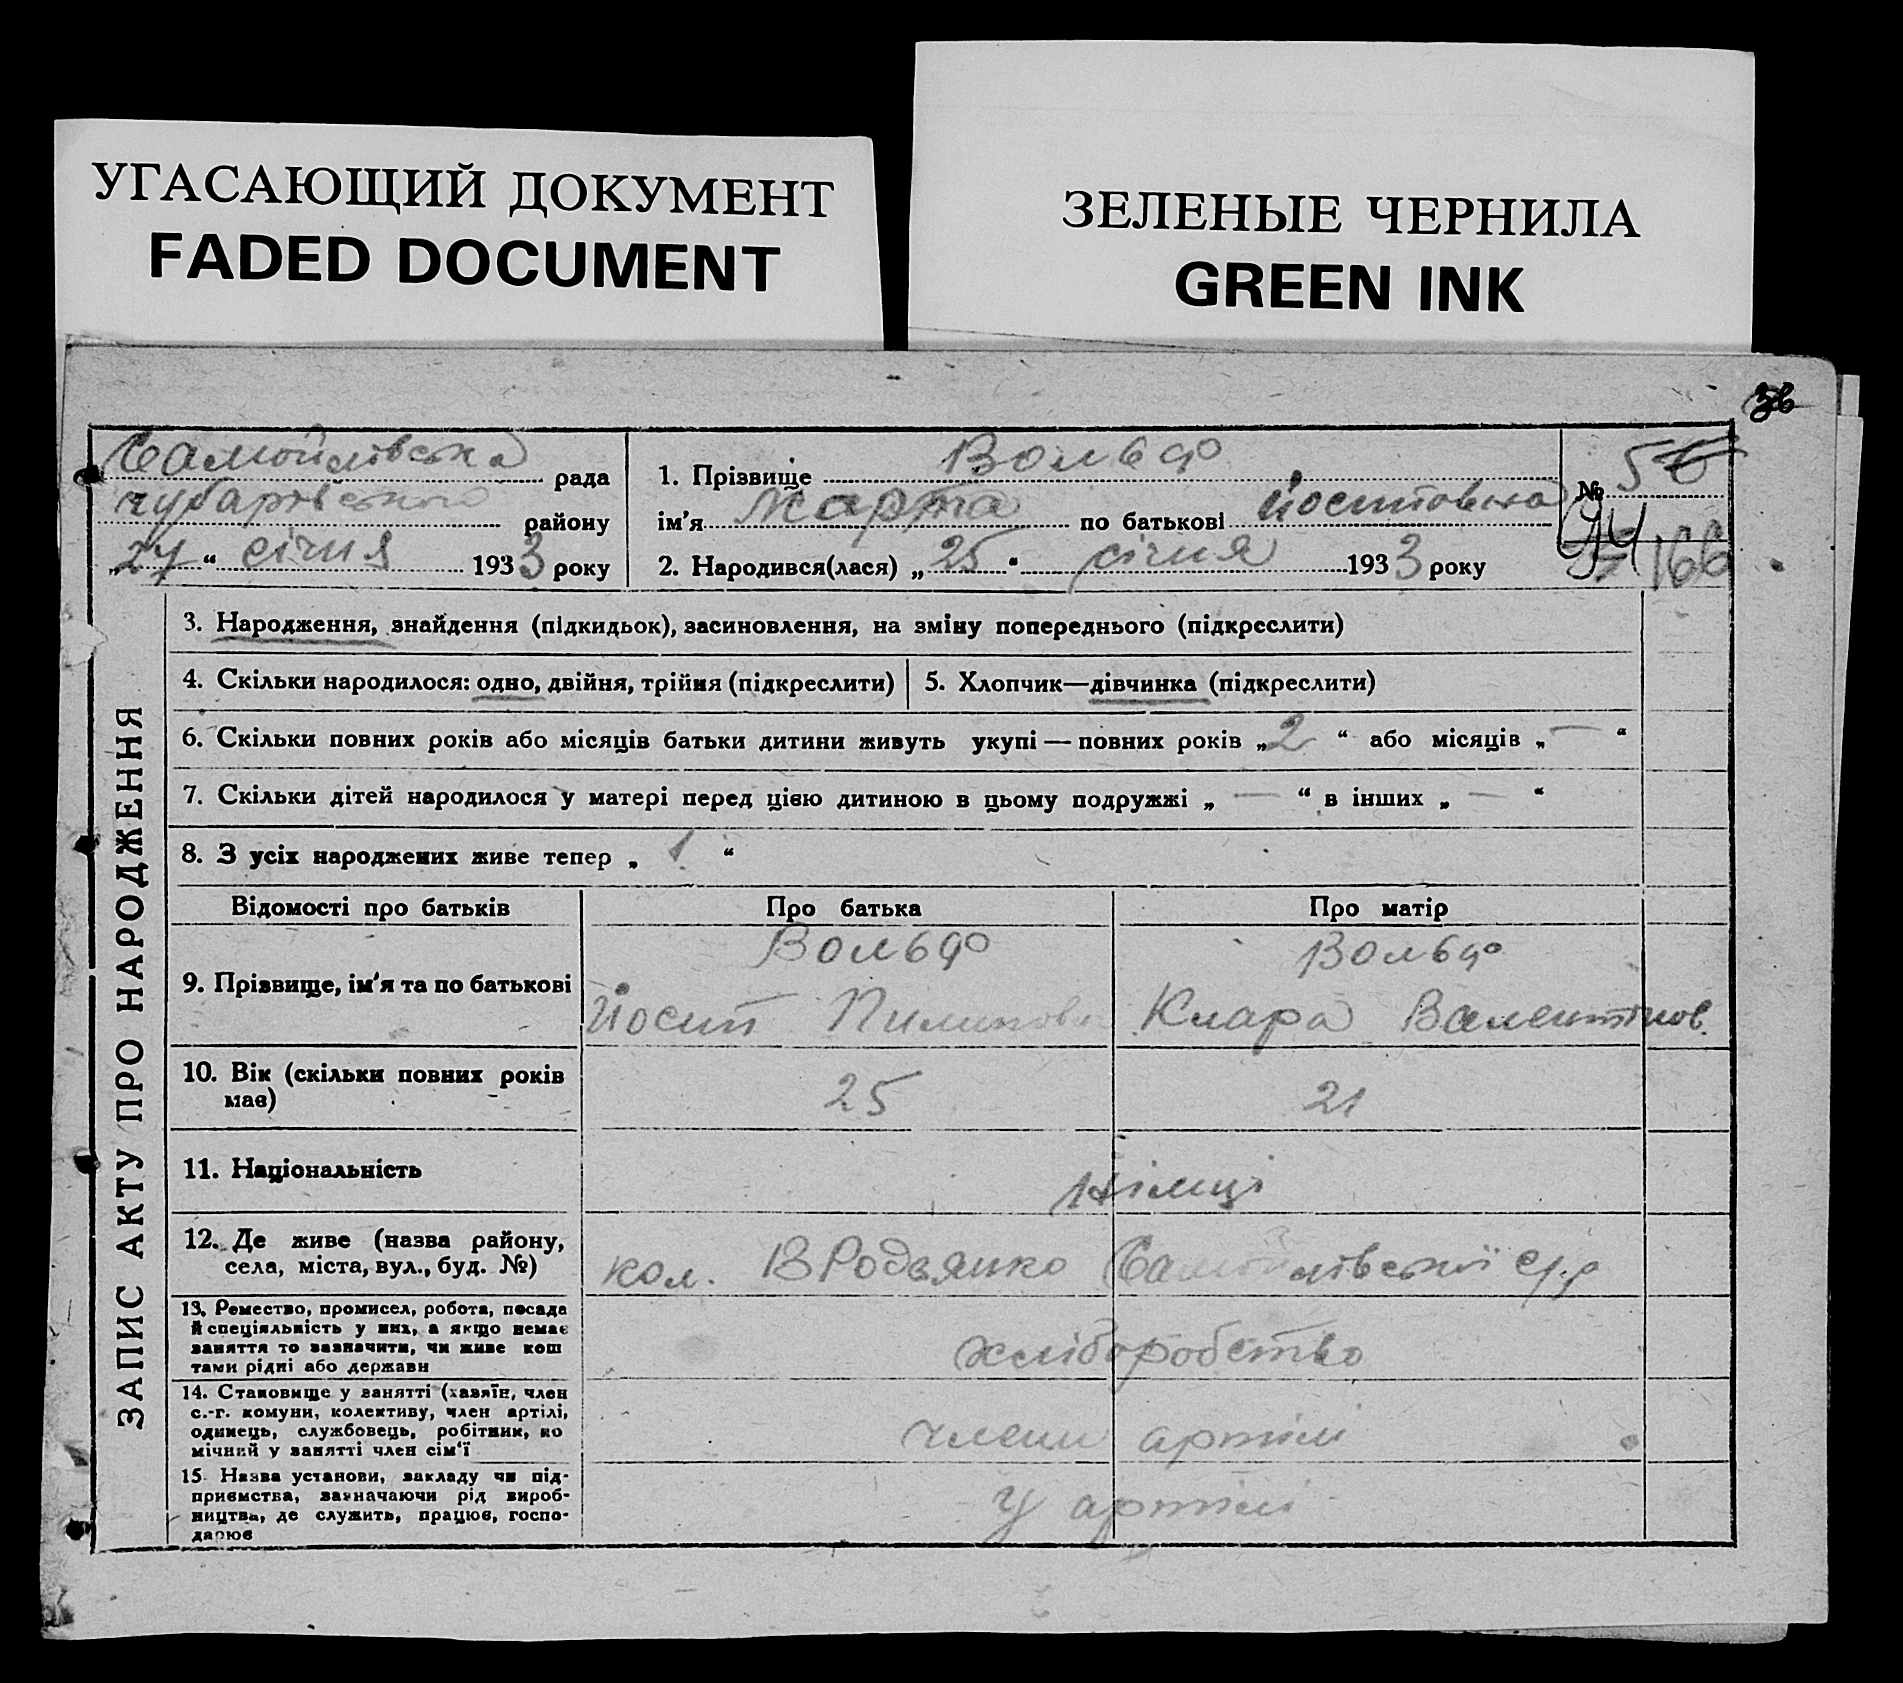 УГАСАЮЩИЙ ДОКУМЕНТ
FADED DOCUMENT
ЗЕЛЕНЫЕ ЧЕРНИЛА
GREEN INK
36
Самойлівська рада
Чубарівського району
„27“ січня 1933 року
1. Прізвище Вольф
ім'я Марта по батькові Йосиповна
2. Народився(лася) „25“ січня 1933 року
№ 56
94
166
ЗАПИС АКТУ ПРО НАРОДЖЕННЯ
3. Народження, знайдення (підкидьок), засиновлення, на зміну попереднього (підкреслити)
4. Скільки народилося: одно, двійня, трійня (підкреслити)
5. Хлопчик—дівчинка (підкреслити)
6. Скільки повних років або місяців батьки дитини живуть укупі — повних років „2“ або місяців „—“
7. Скільки дітей народилося у матері перед цією дитиною в цьому подружжі „—“ в інших „—“
8. З усіх народжених живе тепер „1“
Відомості про батьків Про батька Про матір
9. Прізвище, ім'я та по батькові
Вольф
Йосип
Вольф
Клара Валентінов.
10. Вік (скільки повних років
має)
25
21
11. Національність
Німці
12. Де живе (назва району,
села, міста, вул., буд. №)
кол. В Родзянко Самойлівської с/р
13. Ремество, промисел, робота, посада
й спеціяльність у них, а якщо немає
заняття то зазначити, чи живе кош
тами рідні або держави
хліборобство
14. Становище у занятті (хазяїн, член
с.-г. комуни, колективу, член артілі,
одинець, службовець, робітник, по
мічний у занятті член сім'ї
члени артілі
15. Назва установи, закладу чи під-
приємства, зазначаючи рід вироб-
ництва, де служить, працює, госпо-
дарює
у артілі